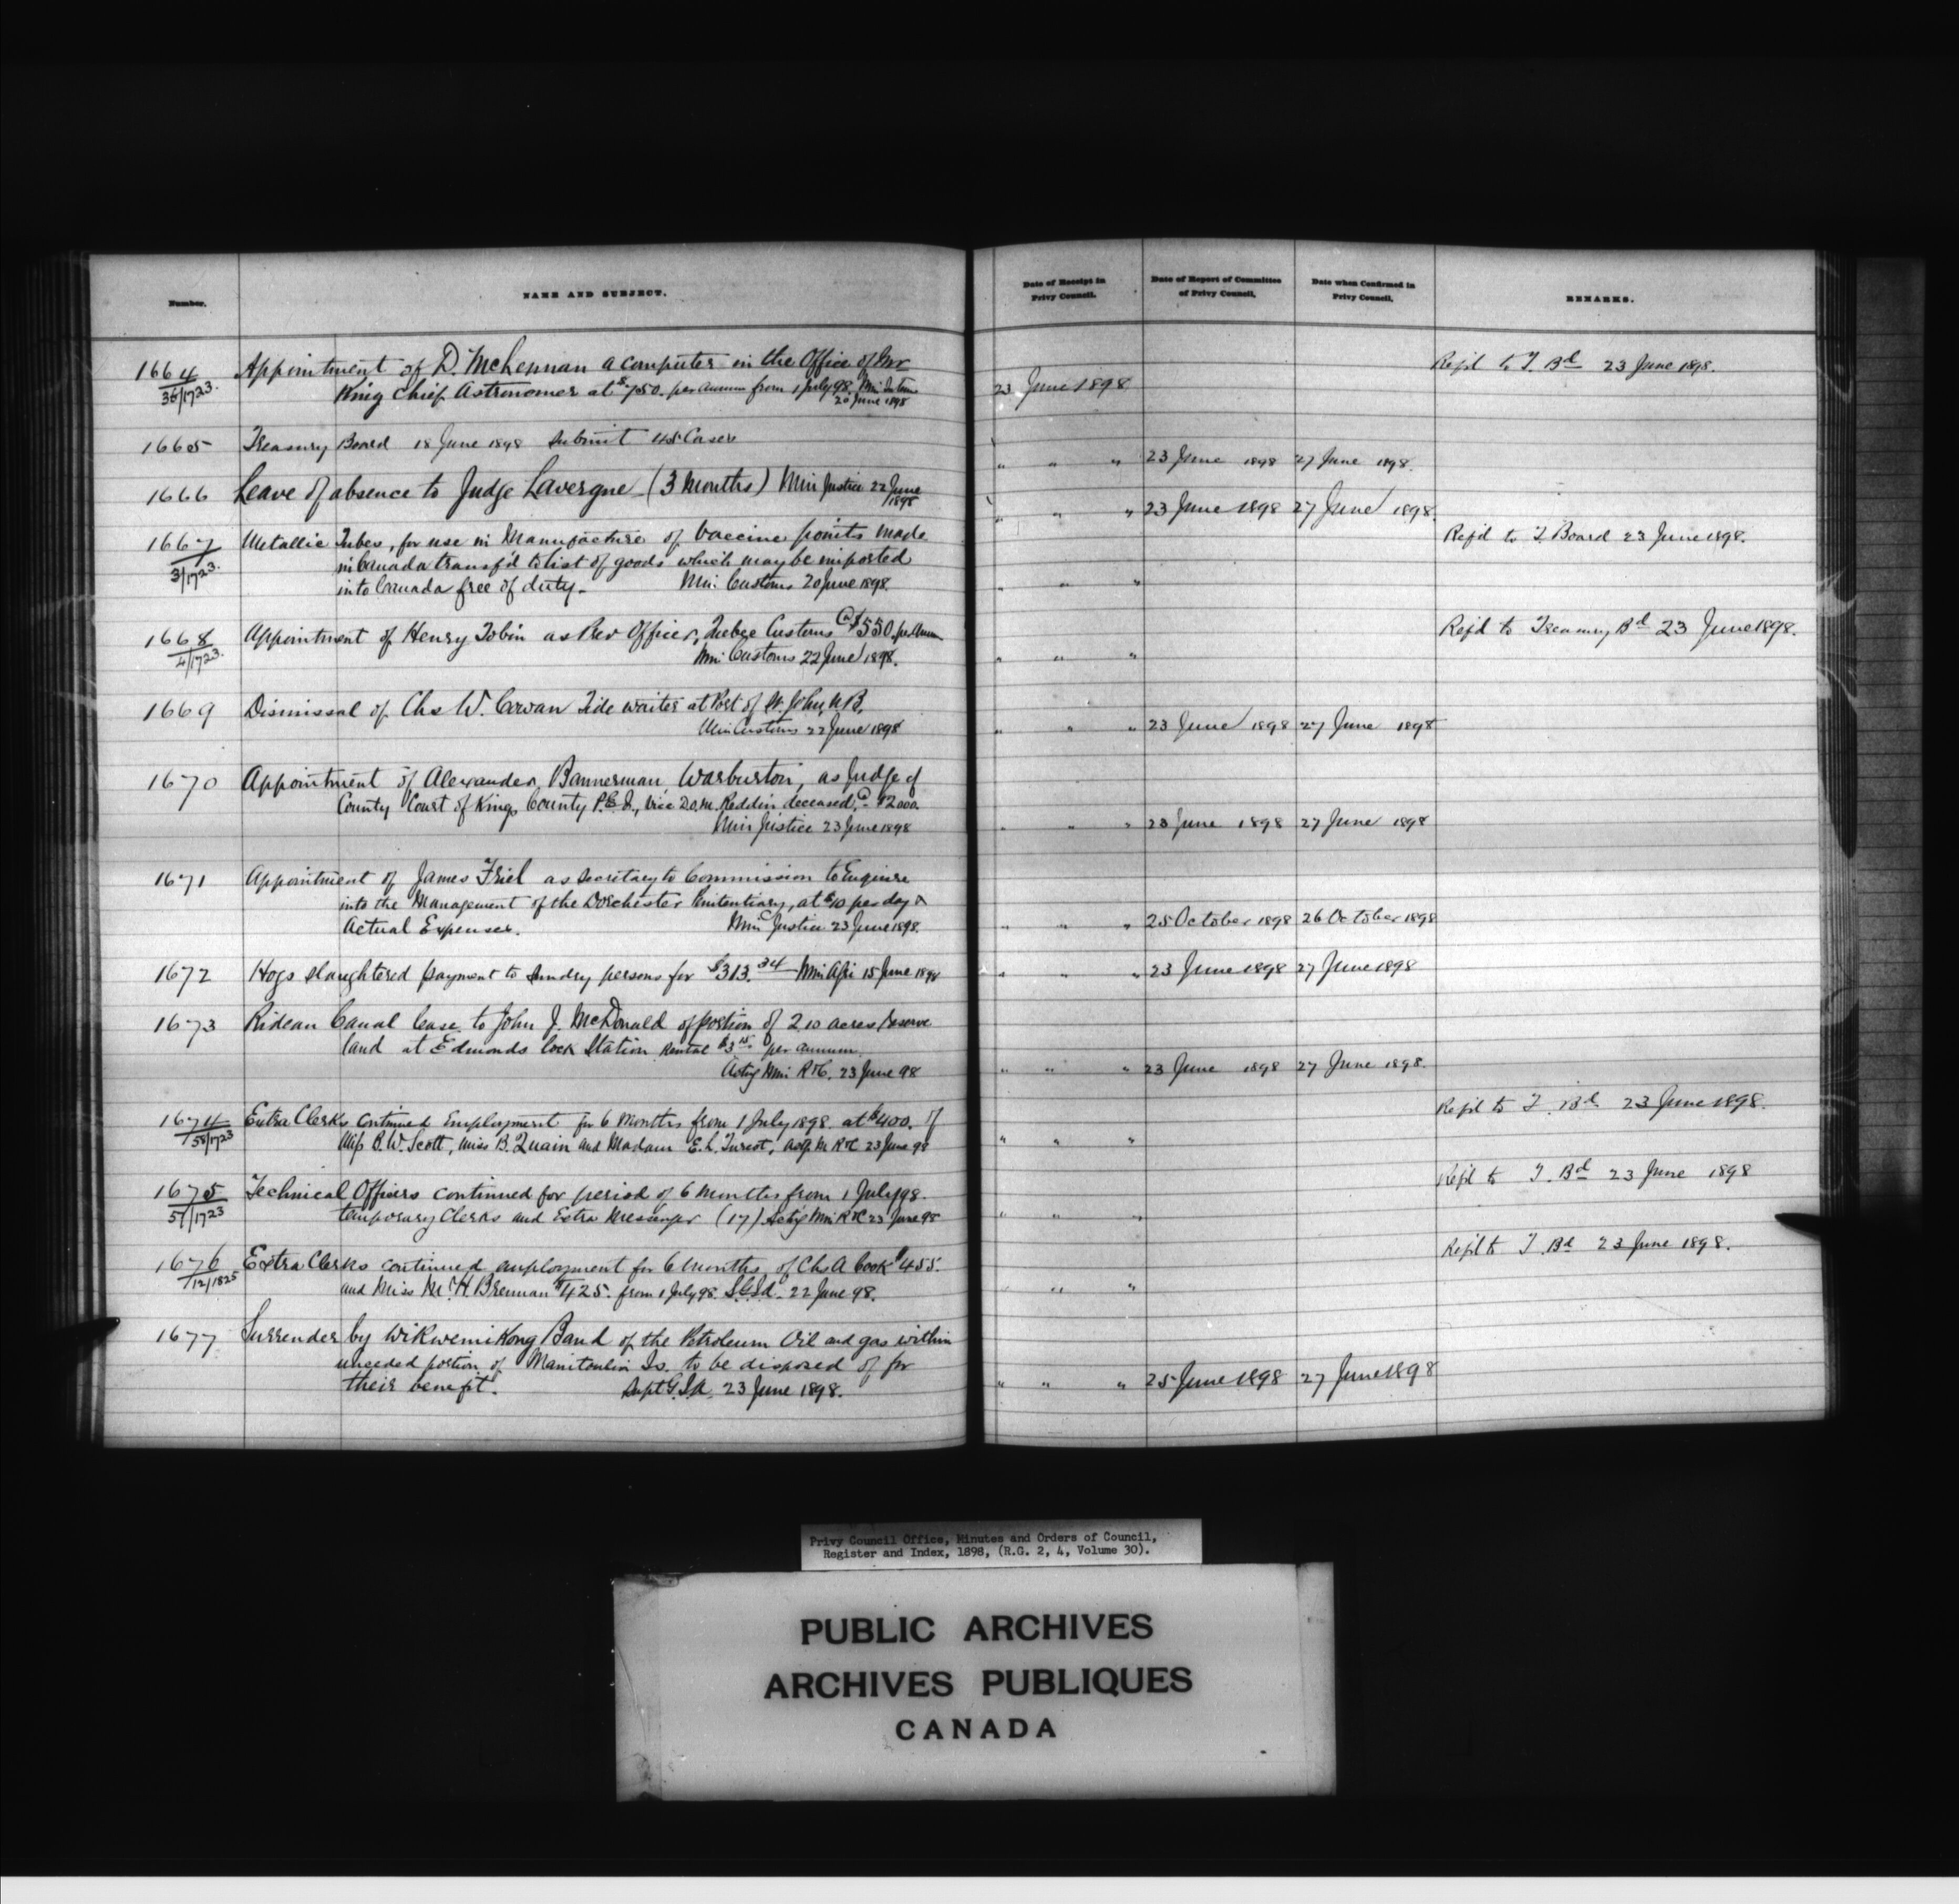 Number.
NAME AND SUBJECT.
Date of Receipt in Privy Council.
Date of Report of Committee of Privy Council.
Date when Confirmed in Privy Council.
REMARKS.
1664 Appointment of D. McLennan a computer in the Office of Mr
35/1723. King Chief Astronomer at $750. per annum from 1 July 98. Min Inter
20 June 1898
23 June 1898
Refd to T. Bd 23 June 1898.
1665 Treasury Board 18 June 1898 submit 45 Cases
" " " 23 June 1898 27 June 1898.
1666 Leave of absence to Judge Lavergne (3 months) Min Justice 22 June 1898
" " " 23 June 1898 27 June 1898.
1667 Metallic Tubes, for use in Manufacture of Vaccine points made
3/1723. in Canada transf'd to list of goods which may be imported
into Canada free of duty. Min Customs 20 June 1898.
" " "
Refd to T. Board 23 June 1898.
1668 Appointment of Henry Tobin as Prev Officer, Quebec Customs @ $550. per Annum
4/1723. Min Customs 22 June 1898.
" " "
Refd to Treasury Bd 23 June 1898.
1669 Dismissal of Chs W. Cowan Tide waiter at Port of St. John, N.B.
Min Customs 22 June 1898
" " " 23 June 1898 27 June 1898
1670 Appointment of Alexander Bannerman Warburton, as Judge of
County Court of Kings County P.E.I., vice D.O.M. Reddin deceased, @ $2000.
Min Justice 23 June 1898
" " " 23 June 1898 27 June 1898
1671 Appointment of James Friel as secretary to Commission to Enquire
into the Management of the Dorchester Penitentiary, at $10 per day &
Actual Expenses. Min Justice 23 June 1898.
" " " 25 October 1898 26 October 1898
1672 Hogs slaughtered payment to sundry persons for $313.34 Min Agri 15 June 1898
" " " 23 June 1898 27 June 1898
1673 Rideau Canal lease to John J. McDonald of portion of 2.10 acres Reserve
land at Edmonds lock Station rental $3 per annum.
Actg Min R&C. 23 June 98
" " " 23 June 1898 27 June 1898.
1674 Extra Clerks continued Employment for 6 Months from 1 July 1898. at $400. of
58/1723 Miss B. W. Scott, Miss B. Quain and Madam E. L. Turcot, Actg. M R&C 23 June 98
" " "
Refd to T. Bd 23 June 1898.
1675 Technical Officers continued for period of 6 Months from 1 July 98.
57/1723 temporary Clerks and Extra Messenger (17) Actg Min R&C 23 June 98
" " "
Refd to T. Bd 23 June 1898
1676 Extra Clerks continued employment for 6 months, of Chs A Cook $455.
12/1825 and Miss M. H. Brennan $425. from 1 July 98. S.G.I.A. 22 June 98.
" " "
Refd to T. Bd 23 June 1898.
1677 Surrender by Wikwemikong Band of the Petroleum Oil and gas within
unceded portion of Manitoulin Is. to be disposed of for
their benefit. Supt G.I.A. 23 June 1898.
" " " 25 June 1898 27 June 1898
Privy Council Office, Minutes and Orders of Council,
Register and Index, 1898, (R.G. 2, 4, Volume 30).
PUBLIC ARCHIVES
ARCHIVES PUBLIQUES
CANADA